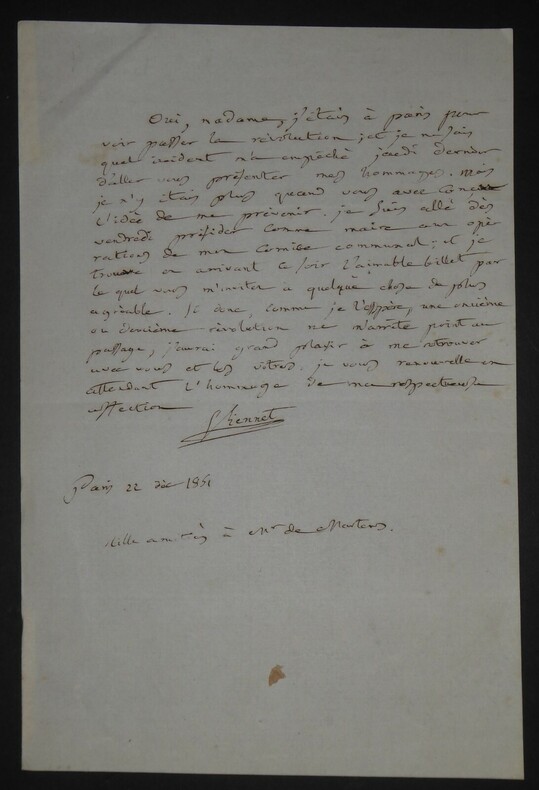 Oui, madame, j'étais à paris pour
voir passer la révolution, et je ne sais
quel incident m'a empêché jeudi dernier
d'aller vous présenter mes hommages. mais
je n'y étais plus quand vous avez conçu
l'idée de me prévenir. je suis allé dès
vendredi présider comme maire aux opé
rations de mon comice communal; et je
trouve en arrivant ce soir l'aimable billet par
le quel vous m'invitez à quelque chose de plus
agréable. Si donc, comme je l'espère, une onzième
ou douzième révolution ne m'arrête point au
passage, j'aurai grand plaisir à me retrouver
avec vous et les vôtres. je vous renouvelle en
attendant l'hommage de ma respectueuse
affection
Viennet
Paris 22 déc 1851
Mille amitiés à Mr de Martens.